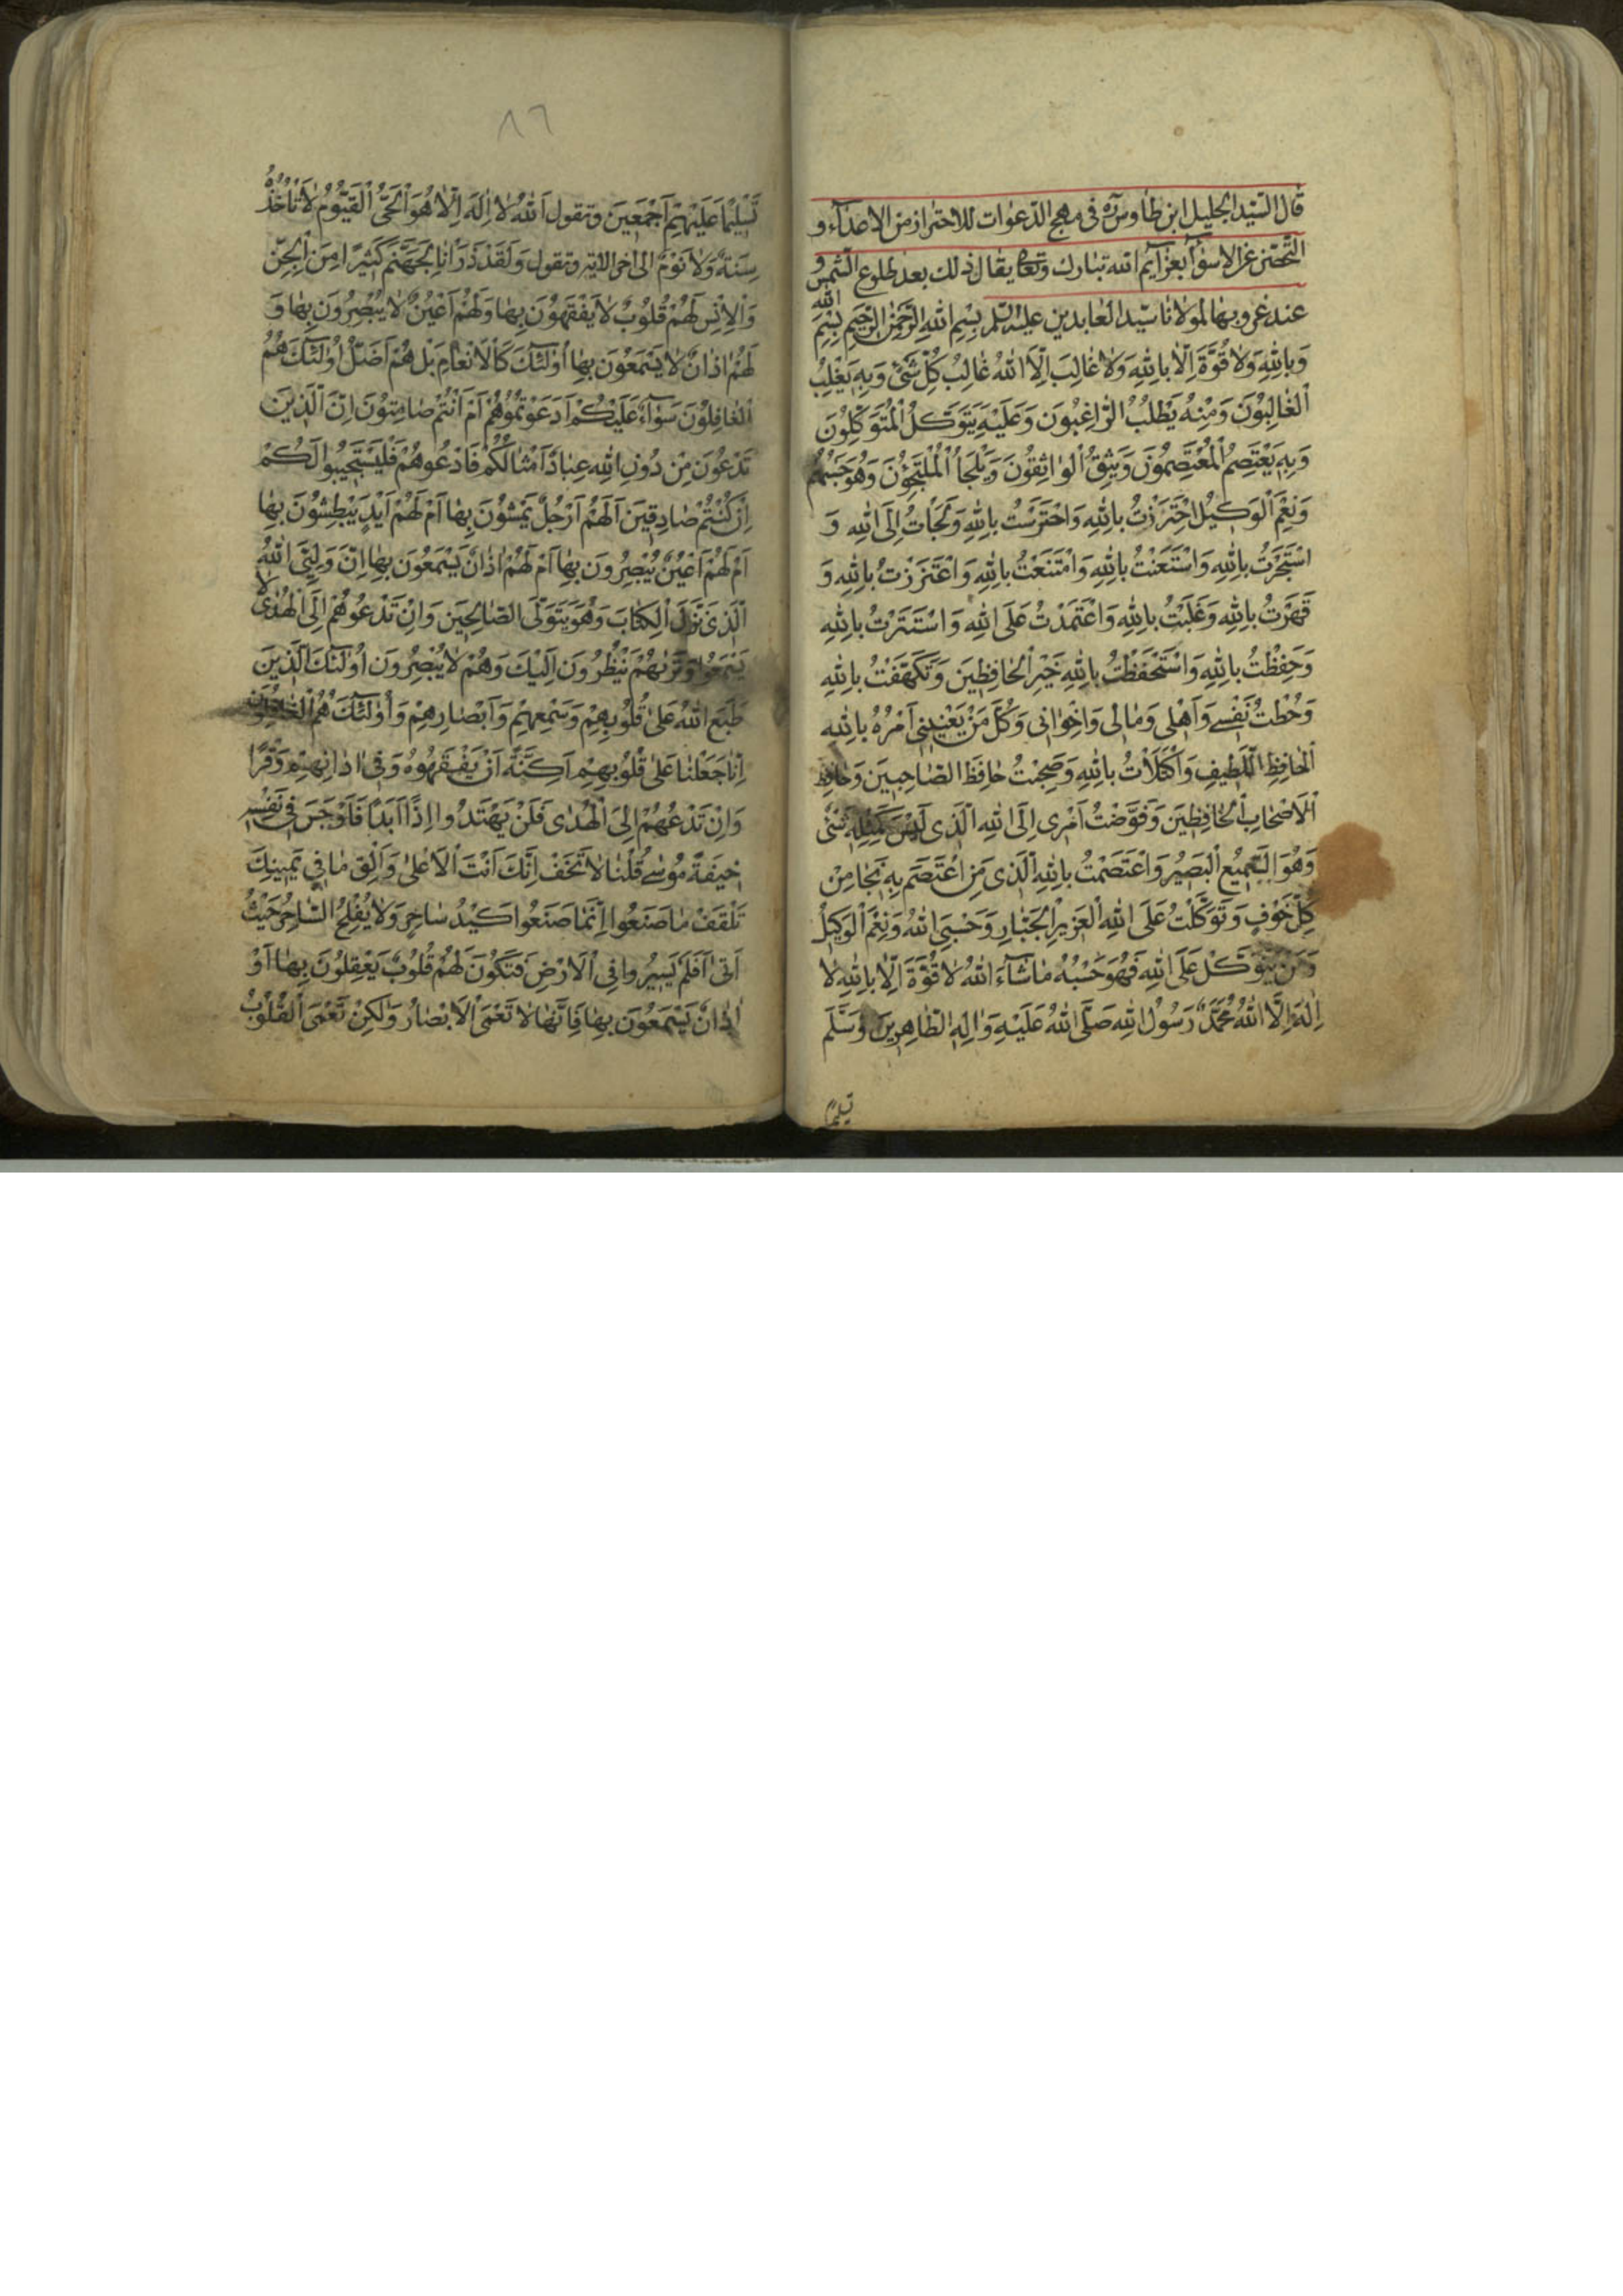 قال السّيد الجليل ابن طاوس ره في مهج الدّعوات للاحتراز من الاعدآء و
التّحصّن عن الاسوآء بعزآئم الله تبارك وتعالى يقال ذلك بعد طلوع الشّمس و
عند غروبها لمولانا سيّد العابدين عليه السّلم بِسْمِ اللهِ الرَّحْمٰنِ الرَّحيمِ بِسْمِ اللهِ
وَبِاللهِ وَلاٰ قُوَّةَ اِلّاٰ بِاللهِ وَلاٰ غٰالِبَ اِلّاَ اللهُ غٰالِبُ كُلِّ شَئٍ وَبِهِ يَغْلِبُ
الْغٰالِبُونَ وَمِنْهُ يَطْلُبُ الرّٰاغِبُونَ وَعَلَيْهِ يَتَوَكَّلُ الْمُتَوَكِّلُونَ
وَبِهِ يَعْتَصِمُ الْمُعْتَصِمُونَ وَيَثِقُ الْوٰاثِقُونَ وَيَلْجَأُ الْمُلْتَجِؤُنَ وَهُوَ حَسْبُهُمْ
وَنِعْمَ الْوَكيلُ احْتَرَزْتُ بِاللهِ وَاحْتَرَسْتُ بِاللهِ وَلَجَأْتُ اِلَى اللهِ وَ
اسْتَجَرْتُ بِاللهِ وَاسْتَعَنْتُ بِاللهِ وَامْتَنَعْتُ بِاللهِ وَاعْتَزَزْتُ بِاللهِ وَ
قَهَرْتُ بِاللهِ وَغَلَبْتُ بِاللهِ وَاعْتَمَدْتُ عَلَى اللهِ وَاسْتَتَرْتُ بِاللهِ
وَحَفِظْتُ بِاللهِ وَاسْتَحْفَظْتُ بِاللهِ خَيْرِ الْحٰافِظينَ وَتَكَهَّفْتُ بِاللهِ
وَحُطْتُ نَفْسي وَاَهْلي وَمٰالي وَاِخْوٰاني وَكُلَّ مَنْ يَعْنيني اَمْرُهُ بِاللهِ
الْحٰافِظِ اللَّطيفِ وَاكْتَلَأْتُ بِاللهِ وَصَحِبْتُ حٰافِظَ الصّٰاحِبينَ وَحٰافِظَ
الْاَصْحٰابِ الْحٰافِظينَ وَفَوَّضْتُ اَمْري اِلَى اللهِ الَّذي لَيْسَ كَمِثْلِهِ شَئٌ
وَهُوَ السَّميعُ الْبَصيرُ وَاعْتَصَمْتُ بِاللهِ الَّذي مَنِ اعْتَصَمَ بِهِ نَجٰا مِنْ
كُلِّ خَوْفٍ وَتَوَكَّلْتُ عَلَى اللهِ الْعَزيزِ الْجَبّٰارِ وَحَسْبِيَ اللهُ وَنِعْمَ الْوَكيلُ
وَمَنْ يَتَوَكَّلْ عَلَى اللهِ فَهُوَ حَسْبُهُ مٰا شٰآءَ اللهُ لاٰ قُوَّةَ اِلّاٰ بِاللهِ لاٰ
اِلٰهَ اِلَّا اللهُ مُحَمَّدٌ رَسُولُ اللهِ صَلَّى اللهُ عَلَيْهِ وَاٰلِهِ الطّٰاهِرينَ وَسَلَّمَ
تسليمًا
٨٦
تَسْليمًا عَلَيْهِمْ اَجْمَعينَ وتقول اَللهُ لاٰ اِلٰهَ اِلّاٰ هُوَ الْحَيُّ الْقَيُّومُ لاٰ تَأْخُذُهُ
سِنَةٌ وَلاٰ نَوْمٌ الى اخر الاية وتقول وَلَقَدْ ذَرَأْنٰا لِجَهَنَّمَ كَثيرًا مِنَ الْجِنِّ
وَالْاِنْسِ لَهُمْ قُلُوبٌ لاٰ يَفْقَهُونَ بِهٰا وَلَهُمْ اَعْيُنٌ لاٰ يُبْصِرُونَ بِهٰا وَ
لَهُمْ اٰذٰانٌ لاٰ يَسْمَعُونَ بِهٰا اُولٰئِكَ كَالْاَنْعٰامِ بَلْ هُمْ اَضَلُّ اُولٰئِكَ هُمُ
الْغٰافِلُونَ سَوٰآءٌ عَلَيْكُمْ اَدَعَوْتُمُوهُمْ اَمْ اَنْتُمْ صٰامِتُونَ اِنَّ الَّذينَ
تَدْعُونَ مِنْ دُونِ اللهِ عِبٰادٌ اَمْثٰالُكُمْ فَادْعُوهُمْ فَلْيَسْتَجيبُوا لَكُمْ
اِنْ كُنْتُمْ صٰادِقينَ اَلَهُمْ اَرْجُلٌ يَمْشُونَ بِهٰا اَمْ لَهُمْ اَيْدٍ يَبْطِشُونَ بِهٰا
اَمْ لَهُمْ اَعْيُنٌ يُبْصِرُونَ بِهٰا اَمْ لَهُمْ اٰذٰانٌ يَسْمَعُونَ بِهٰا اِنَّ وَلِيِّيَ اللهُ
الَّذي نَزَّلَ الْكِتٰابَ وَهُوَ يَتَوَلَّى الصّٰالِحينَ وَاِنْ تَدْعُوهُمْ اِلَى الْهُدٰى لاٰ
يَسْمَعُوا وَتَرٰيهُمْ يَنْظُرُونَ اِلَيْكَ وَهُمْ لاٰ يُبْصِرُونَ اُولٰئِكَ الَّذينَ
طَبَعَ اللهُ عَلىٰ قُلُوبِهِمْ وَسَمْعِهِمْ وَاَبْصٰارِهِمْ وَاُولٰئِكَ هُمُ الْغٰافِلُونَ
اِنّٰا جَعَلْنٰا عَلىٰ قُلُوبِهِمْ اَكِنَّةً اَنْ يَفْقَهُوهُ وَفي اٰذٰانِهِمْ وَقْرًا
وَاِنْ تَدْعُهُمْ اِلَى الْهُدٰى فَلَنْ يَهْتَدُوا اِذًا اَبَدًا فَاَوْجَسَ في نَفْسِهِ
خيفَةً مُوسٰى قُلْنٰا لاٰ تَخَفْ اِنَّكَ اَنْتَ الْاَعْلىٰ وَاَلْقِ مٰا في يَمينِكَ
تَلْقَفْ مٰا صَنَعُوا اِنَّمٰا صَنَعُوا كَيْدُ سٰاحِرٍ وَلاٰ يُفْلِحُ السّٰاحِرُ حَيْثُ
اَتىٰ اَفَلَمْ يَسيرُوا فِي الْاَرْضِ فَتَكُونَ لَهُمْ قُلُوبٌ يَعْقِلُونَ بِهٰا اَوْ
اٰذٰانٌ يَسْمَعُونَ بِهٰا فَاِنَّهٰا لاٰ تَعْمَى الْاَبْصٰارُ وَلٰكِنْ تَعْمَى الْقُلُوبُ